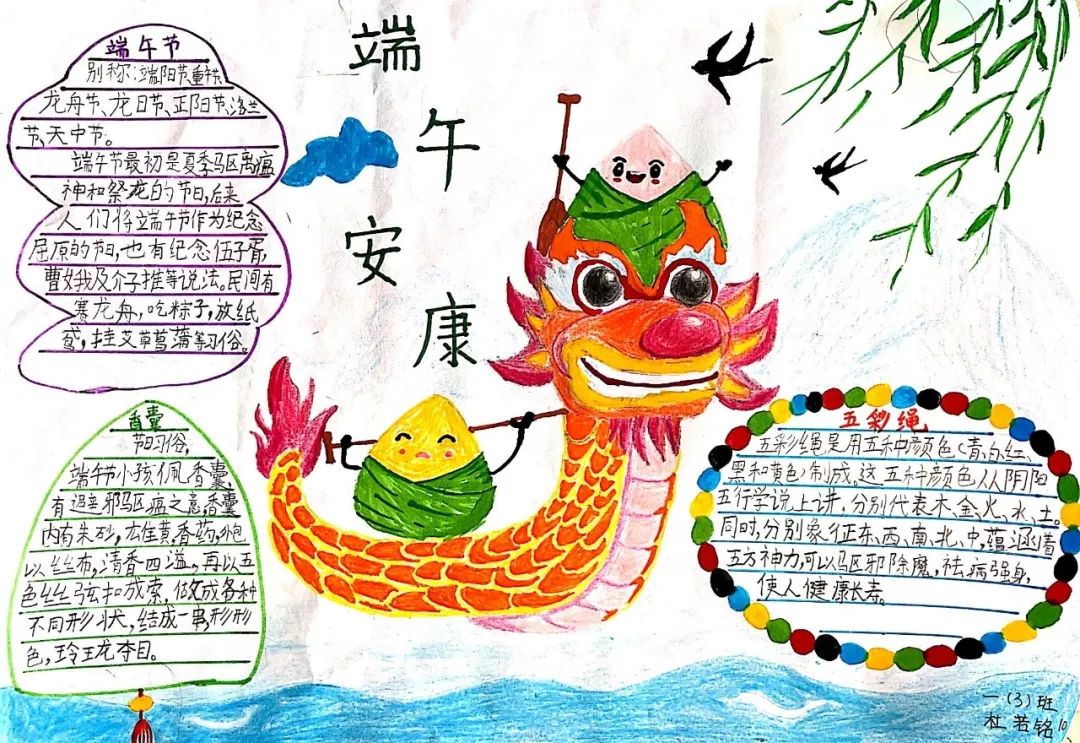 端午安康
端午节
别称:端阳节、重午节、
龙舟节、龙日节、正阳节、浴兰
节、天中节。
端午节最初是夏季驱离瘟
神和祭龙的节日,后来
人们将端午节作为纪念
屈原的节日,也有纪念伍子胥,
曹娥及介子推等说法。民间有
赛龙舟,吃粽子,放纸
鸢,挂艾草菖蒲等习俗。
香囊
节日习俗,
端午节小孩佩香囊,
有避邪驱瘟之意,香囊
内有朱砂,雄黄,香药,外包
以丝布,清香四溢,再以五
色丝线弦扣成索,做成各种
不同形状,结成一串,形形
色,玲珑夺目。
五彩绳
五彩绳是用五种颜色(青、白、红、
黑和黄色)制成,这五种颜色从阴阳
五行学说上讲,分别代表木、金、火、水、土。
同时,分别象征东、西、南、北、中,蕴涵着
五方神力,可以驱邪除魔,祛病强身,
使人健康长寿。
一(3)班
杜若铭10